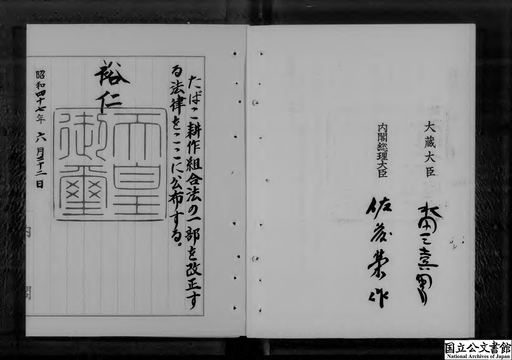 たばこ耕作組合法の一部を改正す
る法律をここに公布する。
裕仁
天皇
御璽
昭和四十七年六月二十二日
内閣
内閣総理大臣
佐藤榮作
大蔵大臣
水田三喜男
国立公文書館
National Archives of Japan